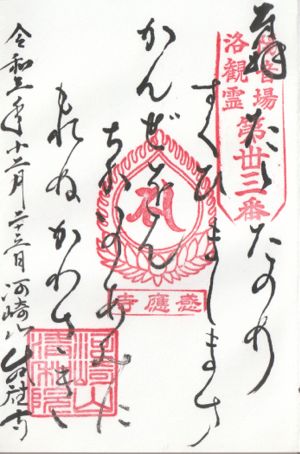 奉拝
洛陽観音霊場
第丗三番
たゞたのめ
すくひまします
かんぜおん
ちかひのあみに
もれぬかわさき
感應寺
令和 年十二月二十三日 河崎山